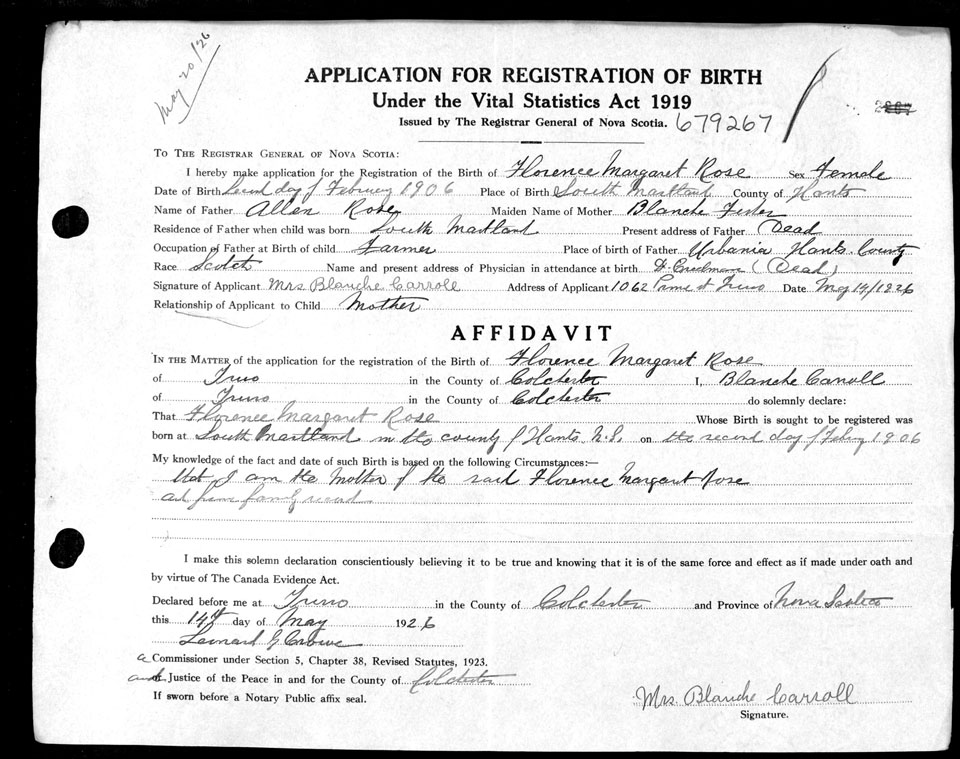 May 20/26
APPLICATION FOR REGISTRATION OF BIRTH
Under the Vital Statistics Act 1919
Issued by The Registrar General of Nova Scotia. 679267
TO THE REGISTRAR GENERAL OF NOVA SCOTIA:
I hereby make application for the Registration of the Birth of Florence Margaret Rose Sex Female
Date of Birth Second day of February 1906 Place of Birth South Maitland County of Hants
Name of Father Allen Rose Maiden Name of Mother Blanche
Residence of Father when child was born South Maitland Present address of Father Dead
Occupation of Father at Birth of child Farmer Place of birth of Father Urbania Hants County
Race Scotch Name and present address of Physician in attendance at birth Dr. (Dead)
Signature of Applicant Mrs Blanche Carroll Address of Applicant 1062 Prince st Truro Date May 14/1926
Relationship of Applicant to Child Mother
AFFIDAVIT
IN THE MATTER of the application for the registration of the Birth of Florence Margaret Rose
of Truro in the County of Colchester I, Blanche Carroll
of Truro in the County of Colchester do solemnly declare:
That Florence Margaret Rose Whose Birth is sought to be registered was
born at South Maitland in the county of Hants N.S. on the second day of Feby 1906
My knowledge of the fact and date of such Birth is based on the following Circumstances:—
that I am the Mother of the said Florence Margaret Rose
and from family record
I make this solemn declaration conscientiously believing it to be true and knowing that it is of the same force and effect as if made under oath and
by virtue of The Canada Evidence Act.
Declared before me at Truro in the County of Colchester and Province of Nova Scotia
this 14th day of May 1926
Leonard G Crowe
a Commissioner under Section 5, Chapter 38, Revised Statutes, 1923.
and Justice of the Peace in and for the County of Colchester
If sworn before a Notary Public affix seal.
Mrs. Blanche Carroll
Signature.